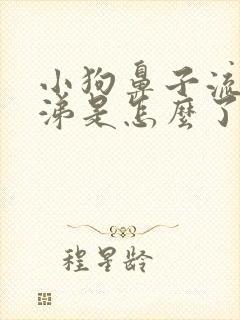 小狗鼻子流
涕是怎麼了
程星龄